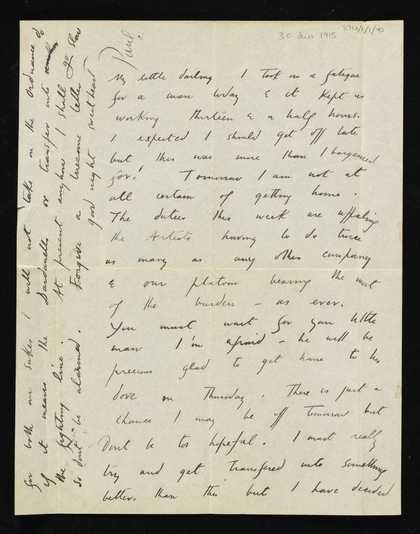 30 Jun 1915
Paul.
My little darling I took on a fatigue
for a man today & it kept us
working thirteen & a half hours.
I expected I should get off late
but this was more than I bargained
for! Tomorrow I am not at
all certain of getting home.
The duties this week are appalling
the Artists having to do twice
as many as any other company
& our platoon bearing the most
of the burden – as ever.
You must wait for your little
man I'm afraid – he will be
precious glad to get home to his
dove on Thursday. There is just a
chance I may be off tomorrow but
Dont be too hopeful. I must really
try and get transfered into something
better than this but I have decided
for both our sakes I will not take on the Ordnance if
if it means the Dardanelles or transfer into
the fighting line. At present anyhow I shall go slow
so dont be alarmed. Forgive a tiresome letter
good night sweetheart